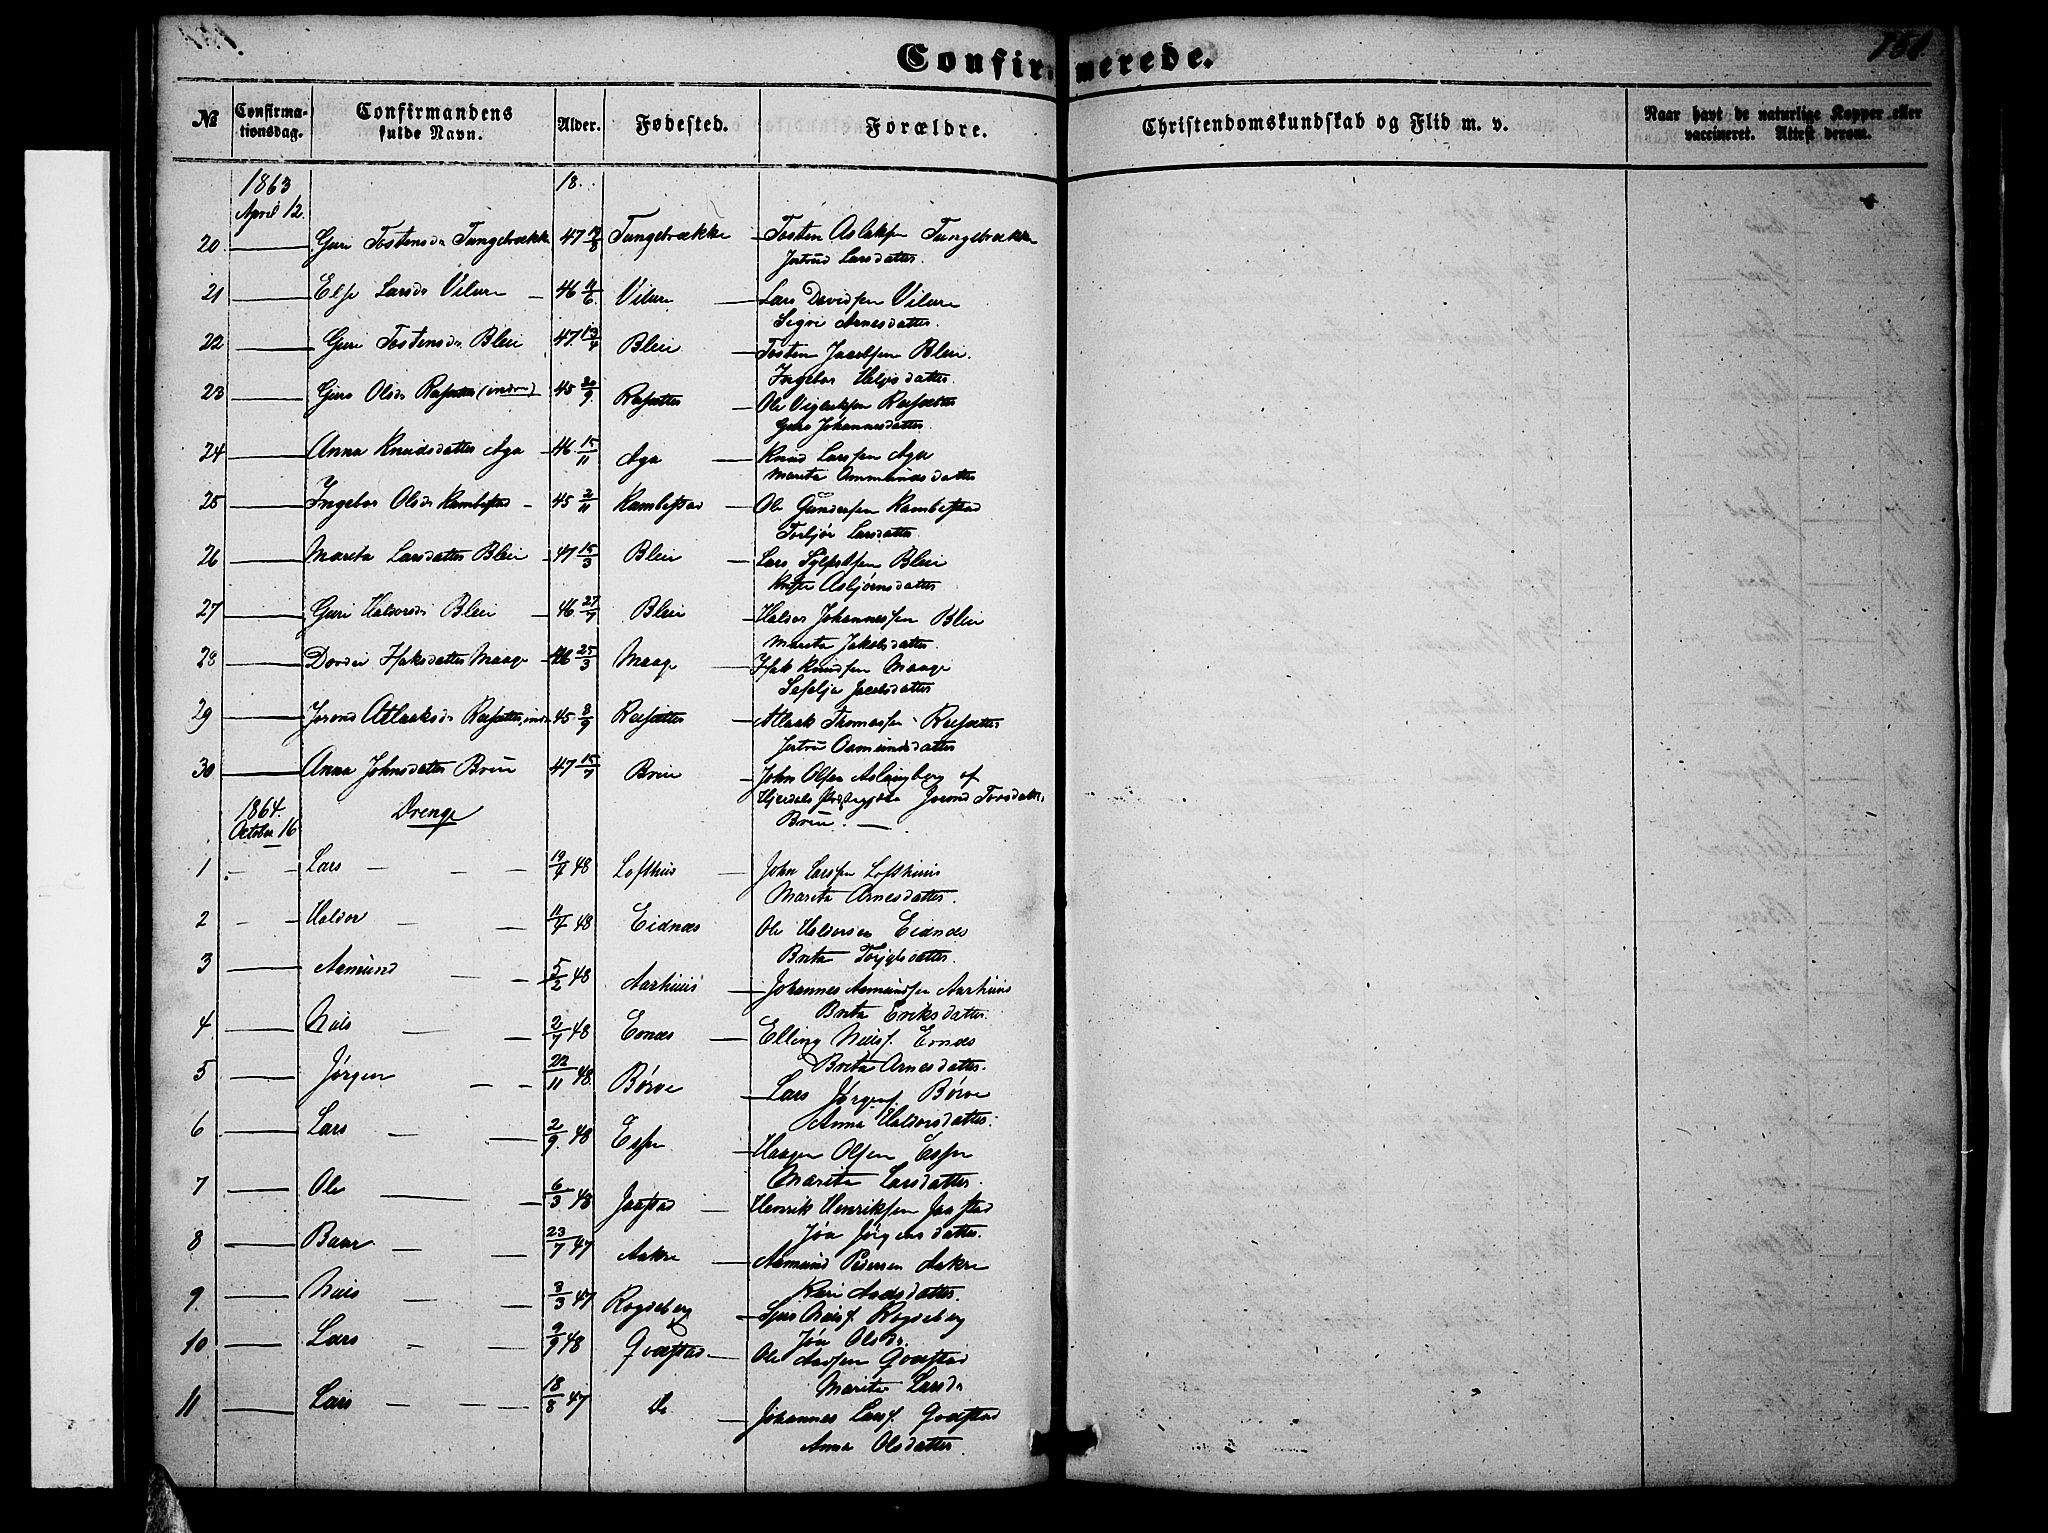 Confirmerede.
181.
№ Confirmationsdag. Confirmandens fulde Navn. Alder. Fødested. Forældre. Christendomskundskab og Flid m. v. Naar havt de naturlige Kopper eller vaccineret. Attest derom.
1863 18.
April 12.
20 Guri Tostensdr Tungebrække 47 Tungebrække Tosten Aslaksen Tungebrække
Jertrud Larsdatter.
21 Else Larsdr Vilure 46 Vilure Lars Davidsen Vilure
Sigri Arnesdatter.
22 Guri Tostensdr Bleie 47 13/4 Bleie Tosten Jacobsen Bleie.
Ingebor datter.
23 Guro Olsdr (indre) 45 Ole
Guro Johannesdatter.
24 Anna Knudsdatter Aga 46 15/11 Aga Knud Larsen Aga
Marita Ammundsdatter
25 Ingebor Olsdr Kambestad 45 2/11 Kambestad Ole Gundersen Kambestad
Torbjør Larsdatter.
26 Marita Larsdatter Bleie 47 15/3 Bleie Lars Bleie
Asbjørnsdatter
27 Guri Haldorsdr Bleie 46 27/7 Bleie Haldor Johannessen Bleie
Marita Jakobsdatter.
28 Hoksdatter Maage 46 25/3 Maage Knudsen Maage
Jacobsdatter
29 Aslaksdr 45 8/9 Aslak Thomassen
Aamundsdatter
30 Anna Johnsdatter Brue 47 15/7 Brue John Olsen af
Torsdatter,
Brue.
1864. Drenge
October 16
1 Lars 19/4 48 Lofthus John Larssen Lofthuus
Marita Arnesdatter.
2 Haldor 11/4 48 Eidnæs Ole Haldorsen Eidnæs
Brita datter.
3 Aamund 5/2 48 Aarhuus Johannes Aamundsen Aarhuus
Brita Eriksdatter.
4 Nils 2/7 48 Ernæs Elling Nilsf. Ernæs
Brita Arnesdatter.
5 Jørgen 22/11 48 Børve Lars Jørgens. Børve
Anna Haldorsdatter.
6 Lars 2/9 48 Espe Haagen Olsen Espe
Marita Larsdatter.
7 Ole 6/3 48 Jaastad Henrik Henriksen Jaastad
Jøn Jørgensdatter.
8 Baar 23/7 47 Aakre Aamund Pedersen Aakre
Kari datter.
9 Nils 3/3 47 Rogdeberg Nilsf. Rogdeberg
Jøn Olsdr.
10 Lars 9/9 48 Qvæstad Ole Qvæstad
Marita Larsdr
11 Lars 18/8 47 Do Johannes Larsf. Qvæstad
Anna Olsdatter.